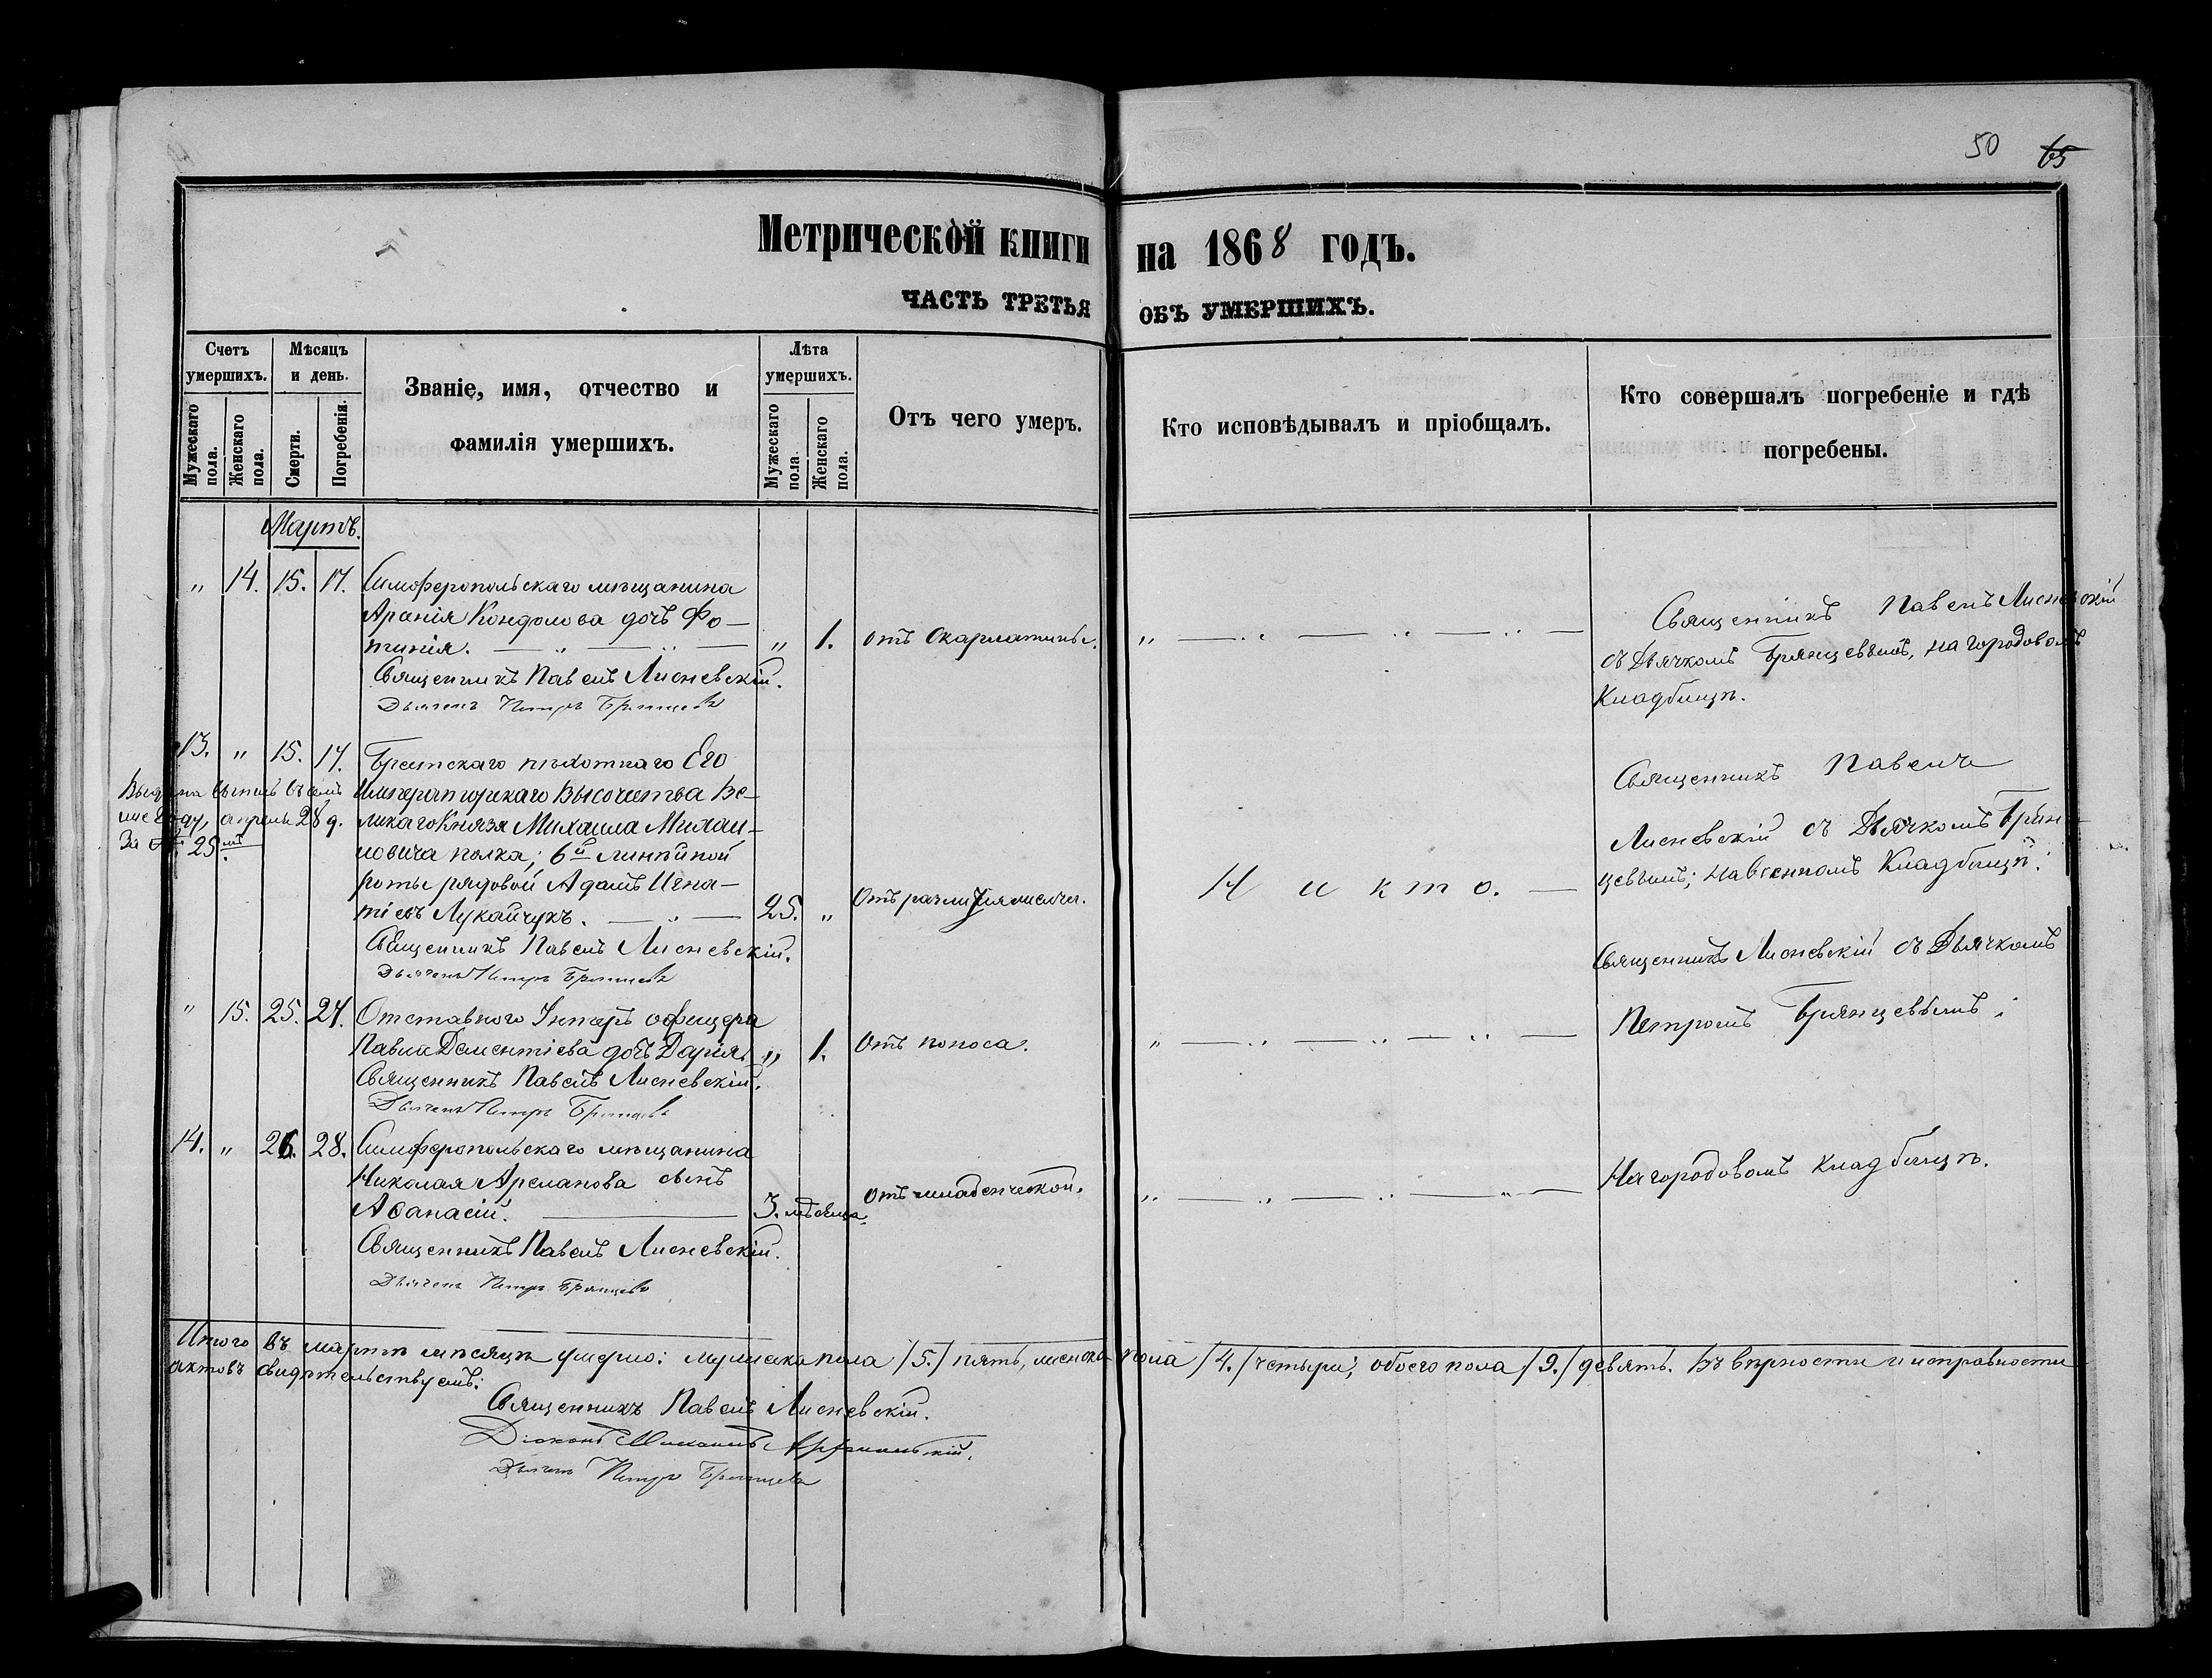 50 65
Метрической книги на 1868 годъ.
ЧАСТЬ ТРЕТЬЯ ОБЪ УМЕРШИХЪ.
Счетъ умершихъ.
Мужескаго пола.
Женскаго пола.
Мѣсяцъ и день.
Смерти.
Погребенія.
Званіе, имя, отчество и
фамилія умершихъ.
Лѣта умершихъ.
Мужескаго пола.
Женскаго пола.
Отъ чего умеръ.
Кто исповѣдывалъ и пріобщалъ.
Кто совершалъ погребеніе и гдѣ
погребены.
Мартъ.
" 14. 15. 17. Симферопольскаго мѣщанина
Кондолова дочь Фо-
тинія. " 1. отъ скарлатины. "
Священникъ Павелъ Лисневскій.
Дьячекъ Петръ Брянцевъ
Священникъ Павелъ Лисневскій
съ Дьячкомъ Брянцевымъ, на городовомъ
Кладбищѣ.
13. " 15. 17. Брестскаго пѣхотнаго Его
Императорскаго Высочества Ве-
ликаго Князя Михаила Михаи-
ловича полка; 6й линѣйной
роты рядовой Адамъ Игна-
тіевъ Лукайчукъ. 25. "
Священникъ Павелъ Лисневскій.
Дьячекъ Петръ Брянцевъ
году, апреля 28 д.
За № 25мъ
Никто.
Священникъ Павелъ
Лисневскій съ Дьячкомъ Брян-
цевымъ; на военномъ Кладбищѣ.
" 15. 25. 27. Отставного Унтеръ офицера
Павла Дементіева дочь Дарія " 1. Отъ поноса. "
Священникъ Павелъ Лисневскій.
Дьячекъ Петръ Брянцевъ
Священникъ Лисневскій съ Дьячкомъ
Петромъ Брянцевымъ;
14. " 26. 28. Симферопольскаго мѣщанина
Николая Арсланова сынъ
Аѳанасій. 3. мѣсяца. отъ младенческой. "
Священникъ Павелъ Лисневскій.
Дьячекъ Петръ Брянцевъ
На городовомъ кладбищѣ.
Итого въ мартѣ мѣсяцѣ умерло: мужеска пола /5./ пять, женска пола /4./ четыри; обоего пола /9./ девять. Въ вѣрности и исправности
актовъ свидѣтельствуемъ:
Священникъ Павелъ Лисневскій.
Діаконъ Михаилъ
Дьячекъ Петръ Брянцевъ